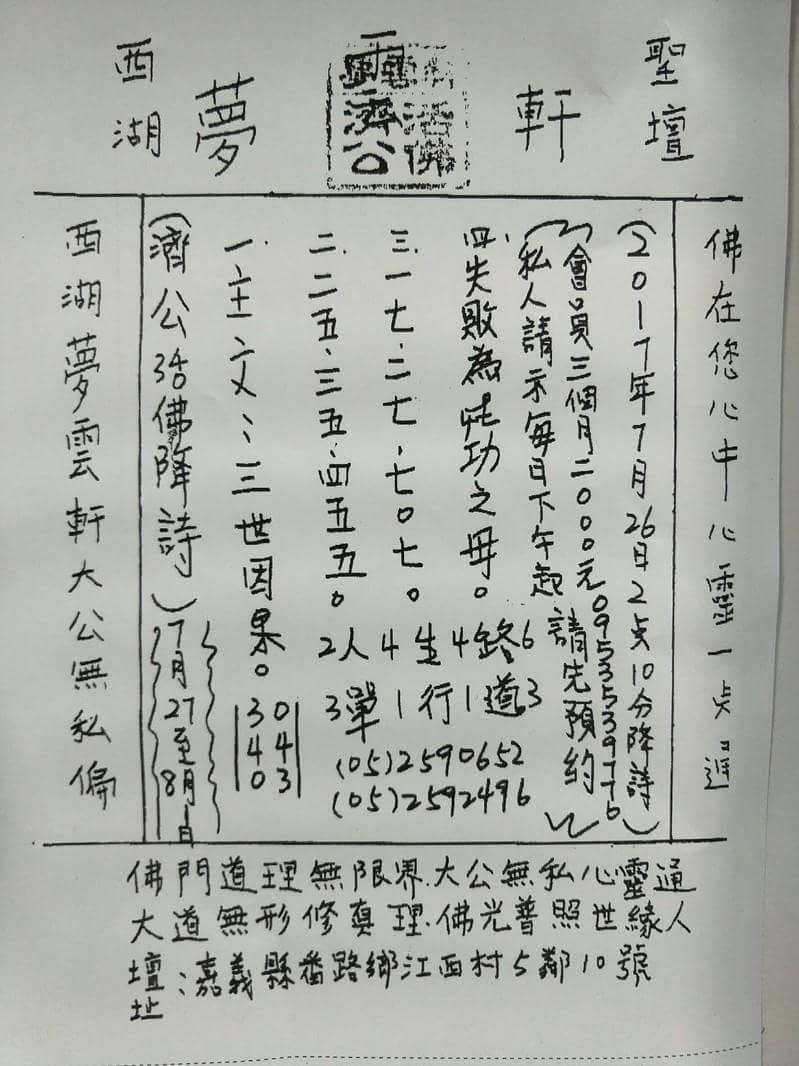 西湖 夢 軒 聖壇
濟公
佛在您心中心靈一点通
(2017年7月26日2点10分降詩)
會員三個月二000元0953539776
(私人請示每日下午起 請先預約)
四.失敗為成功之母。
三.一七.二七.七0七。
二.二五.三五.四五五。
2人4生4路6
3單1行1道3
(05)2590652
(05)2592496
三世因果。
30
44
03
(濟公活佛降詩)
7月27至8月1日
西湖夢雲軒大公無私偏
佛門道理無限界.大公無私心靈通
大道無形修真理.佛光普照世緣人
壇址:嘉義縣番路鄉江西村5鄰10號